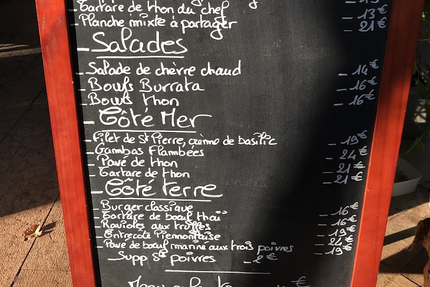 _Tartare de thon du chef _ 13€
_Planche mixte à partager _ 21€
_Salades
_Salade de chèvre chaud _ 14€
_Bowls Burrata _ 16€
_Bowls thon _ 16€
_Côté Mer
_Filet de St Pierre, crème de basilic _ 19€
_Gambas Flambées _ 24€
_Pavé de thon _ 21€
_Tartare de thon _ 21€
_Côté terre
_Burger classique _ 16€
_Tartare de bœuf thaï _ 16€
_Ravioles aux truffes _ 19€
_Entrecôte Piemontaise _ 24€
_Pavé de bœuf mariné aux trois poivres _ 19€
_Supp Sce poivres _2€